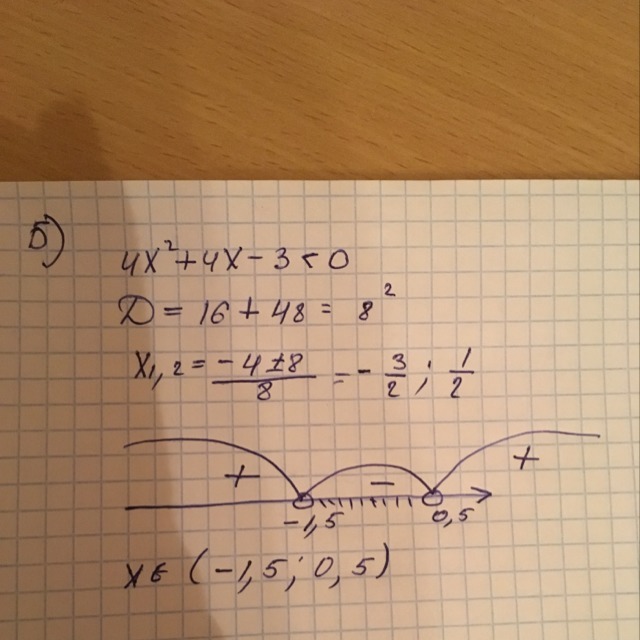 б)
4x² + 4x - 3 < 0
D = 16 + 48 = 8²
x₁,₂ = (-4 ± 8)/8 = - 3/2 ; 1/2
+ - +
-1,5 0,5
x ∈ (-1,5 ; 0,5)